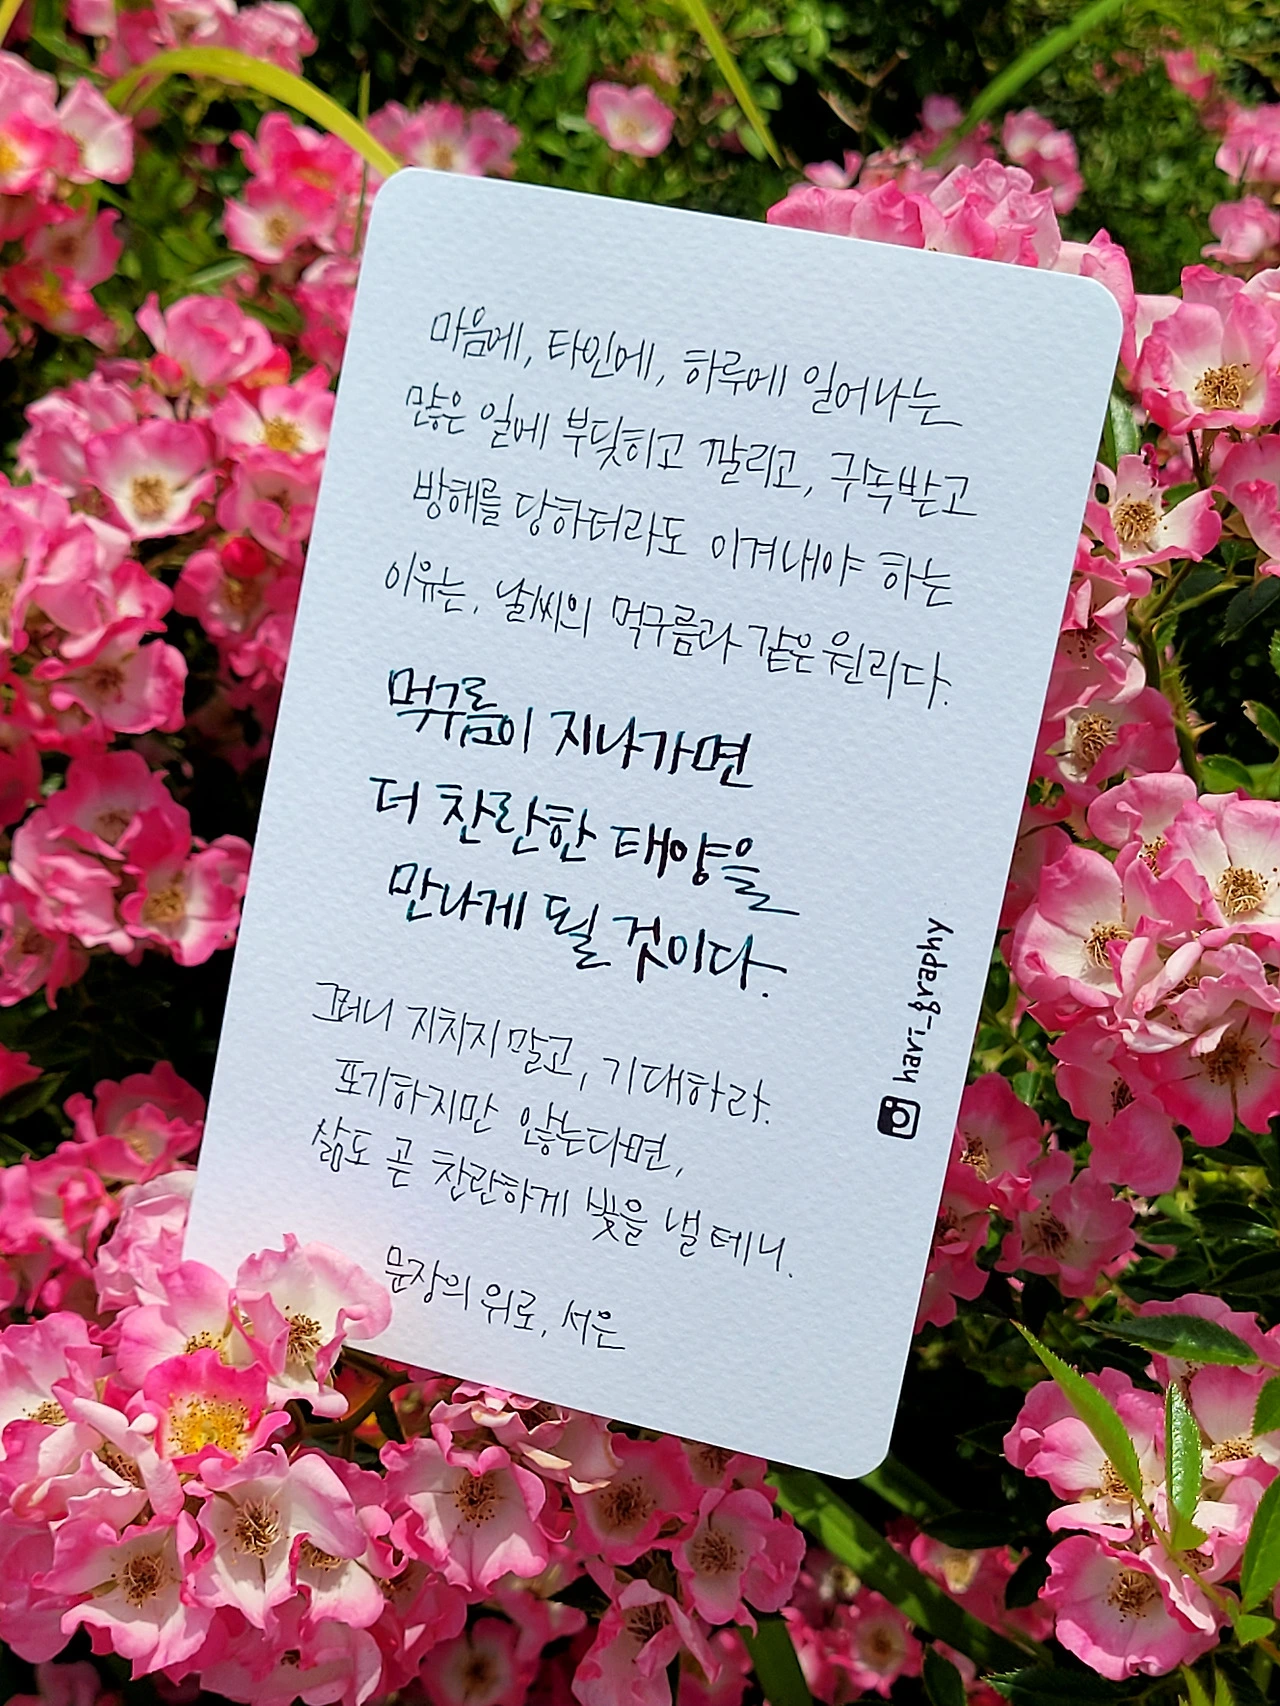 마음에, 타인에, 하루에 일어나는
많은 일에 부딪히고 깔리고, 구독받고
방해를 당하더라도 이겨내야 하는
이유는, 날씨의 먹구름과 같은 원리다.
먹구름이 지나가면
더 찬란한 태양을
만나게 될 것이다.
그러니 지치지 말고, 기대하라.
포기하지만 않는다면,
삶도 곧 찬란하게 빛을 낼 테니.
문장의 위로, 서은
hari_graphy